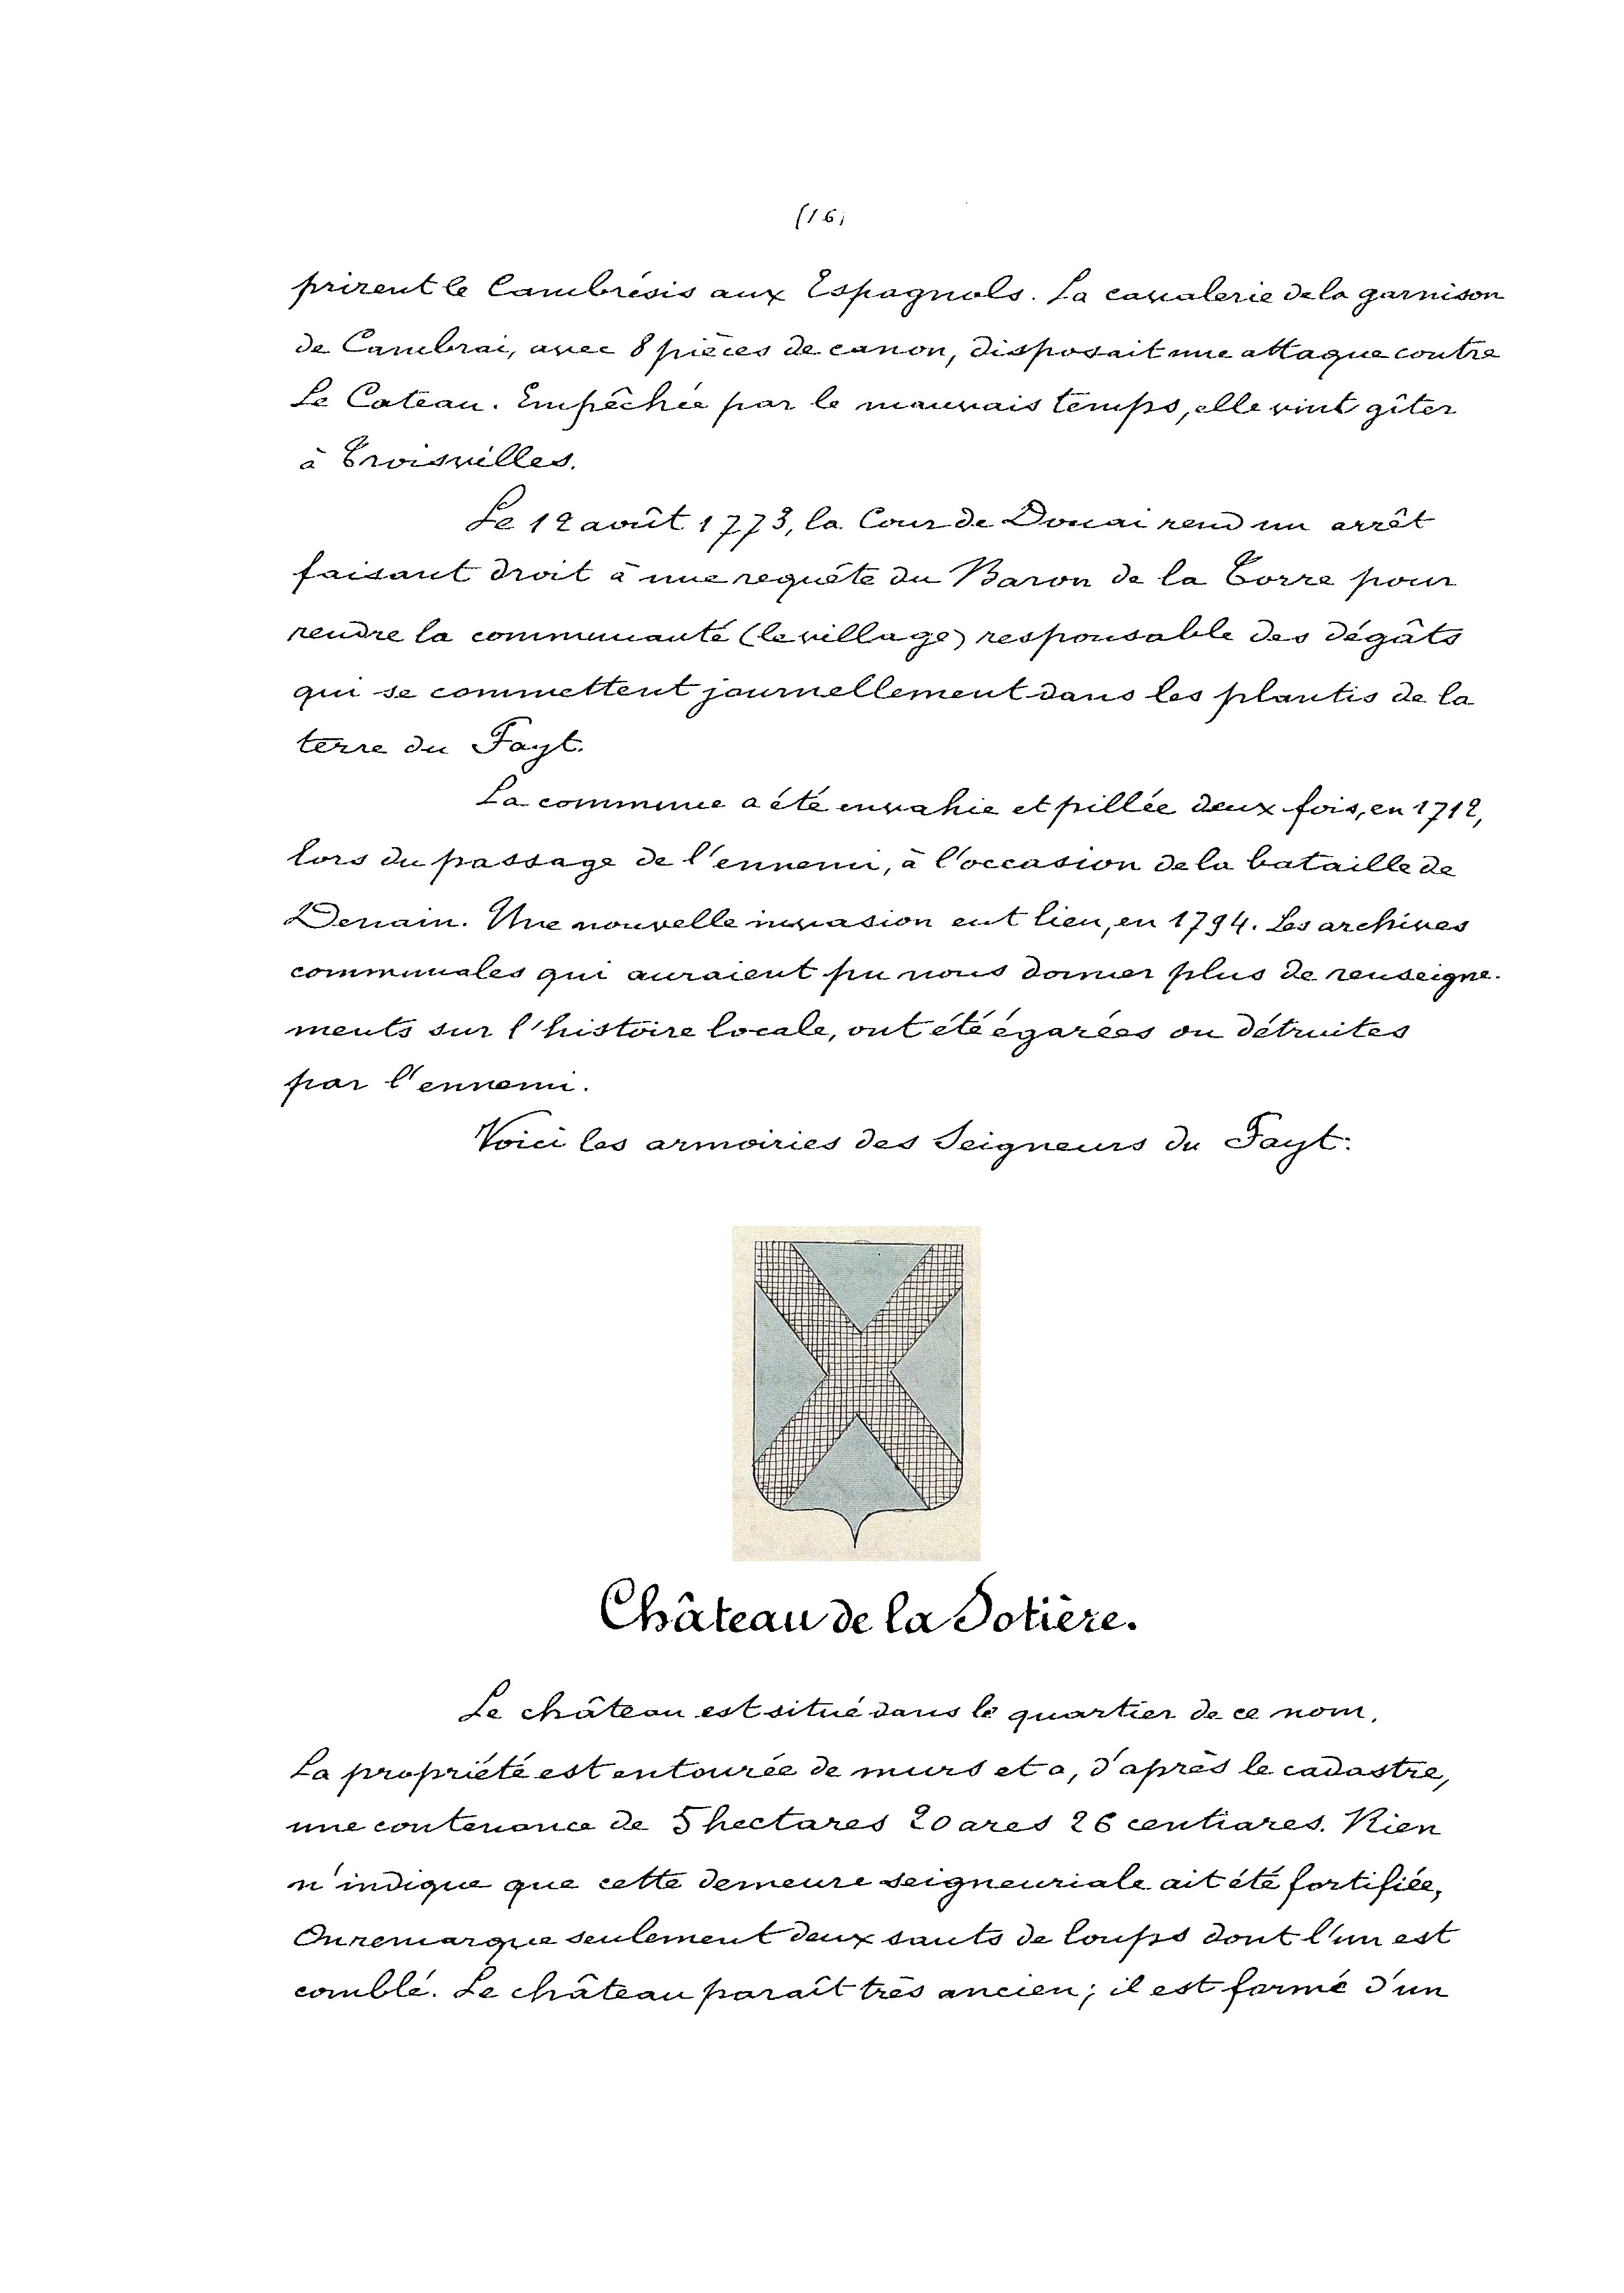 (16)
prirent le Cambrésis aux Espagnols. La cavalerie de la garnison
de Cambrai, avec 8 pièces de canon, disposait une attaque contre
Le Cateau. Empêchée par le mauvais temps, elle vint gîter
à Troisvilles.
Le 12 août 1773, la Cour de Douai rend un arrêt
faisant droit à une requête du Baron de la Torre pour
rendre la communauté (le village) responsable des dégâts
qui se commettent journellement dans les plantis de la
terre du Fayt.
La commune a été envahie et pillée deux fois, en 1712,
lors du passage de l'ennemi, à l'occasion de la bataille de
Denain. Une nouvelle invasion eut lieu, en 1794. Les archives
communales qui auraient pu nous donner plus de renseigne-
ments sur l'histoire locale, ont été égarées ou détruites
par l'ennemi.
Voici les armoiries des Seigneurs du Fayt:
Château de la Sotière.
Le château est situé dans le quartier de ce nom.
La propriété est entourée de murs et a, d'après le cadastre,
une contenance de 5 hectares 20 ares 26 centiares. Rien
n'indique que cette demeure seigneuriale ait été fortifiée,
On remarque seulement deux sauts de loups dont l'un est
comblé. Le château paraît très ancien; il est formé d'un